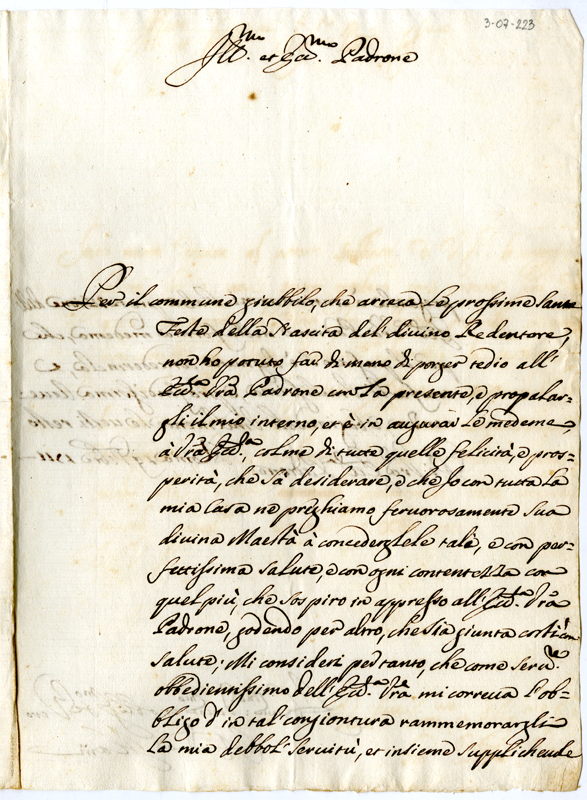 3-07-223
Ill.mo et Ecc.mo Padrone
Per il commune giubbilo, che arreca le prossime Sante
Feste della Nascita del divino Redentore,
non ho potuto far di meno di porger tedio all'
Ecc.za Vr̃a Padrone con la presente, e propalar=
gli il mio interno, et è in augurar le medeme,
à Vr̃a Ecc.za, colme di tutte quelle felicità, e pros=
perità, che sà desiderare, e che Io con tutta la
mia Casa ne preghiamo fervorosamente sua
divina Maestà à concederglele tale, e con per=
fettissima salute, e con ogni contentezza con
quel più, che sospiro in appresso all'Ecc.za Vr̃a
Padrone, godendo per altro, che sia giunta costì con
salute; Mi consideri pertanto, che come serv.e
obbedientissimo dell'Ecc.za Vr̃a mi correva l'ob=
bligo d'in tal congiontura rammemorargli
la mia debbol servitù, et insieme supplichevole